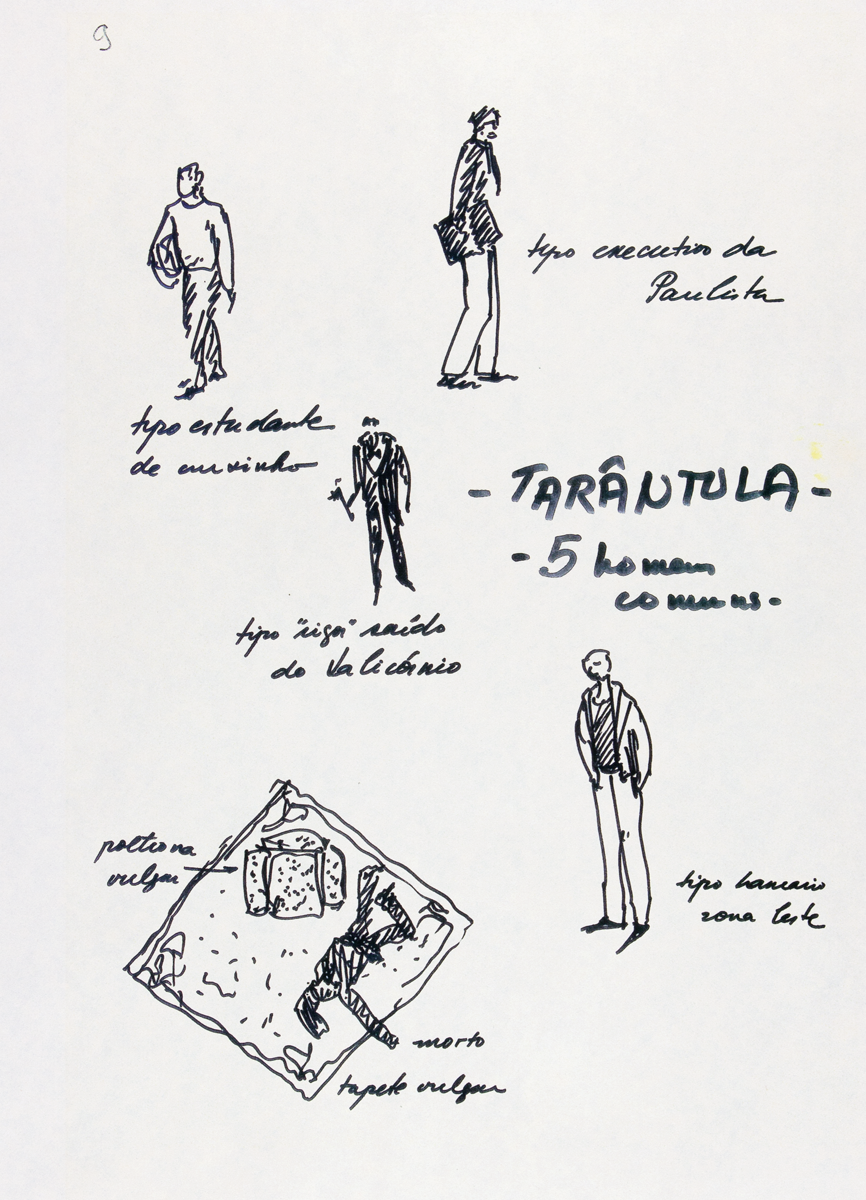 9
tipo executivo da
Paulista
tipo estudante
de cursinho
- TARÂNTULA -
- 5 homens
comuns -
tipo "rigor" saído
do Valicórnio
poltrona
vulgar
tipo bancario
zona leste
morto
tapete vulgar